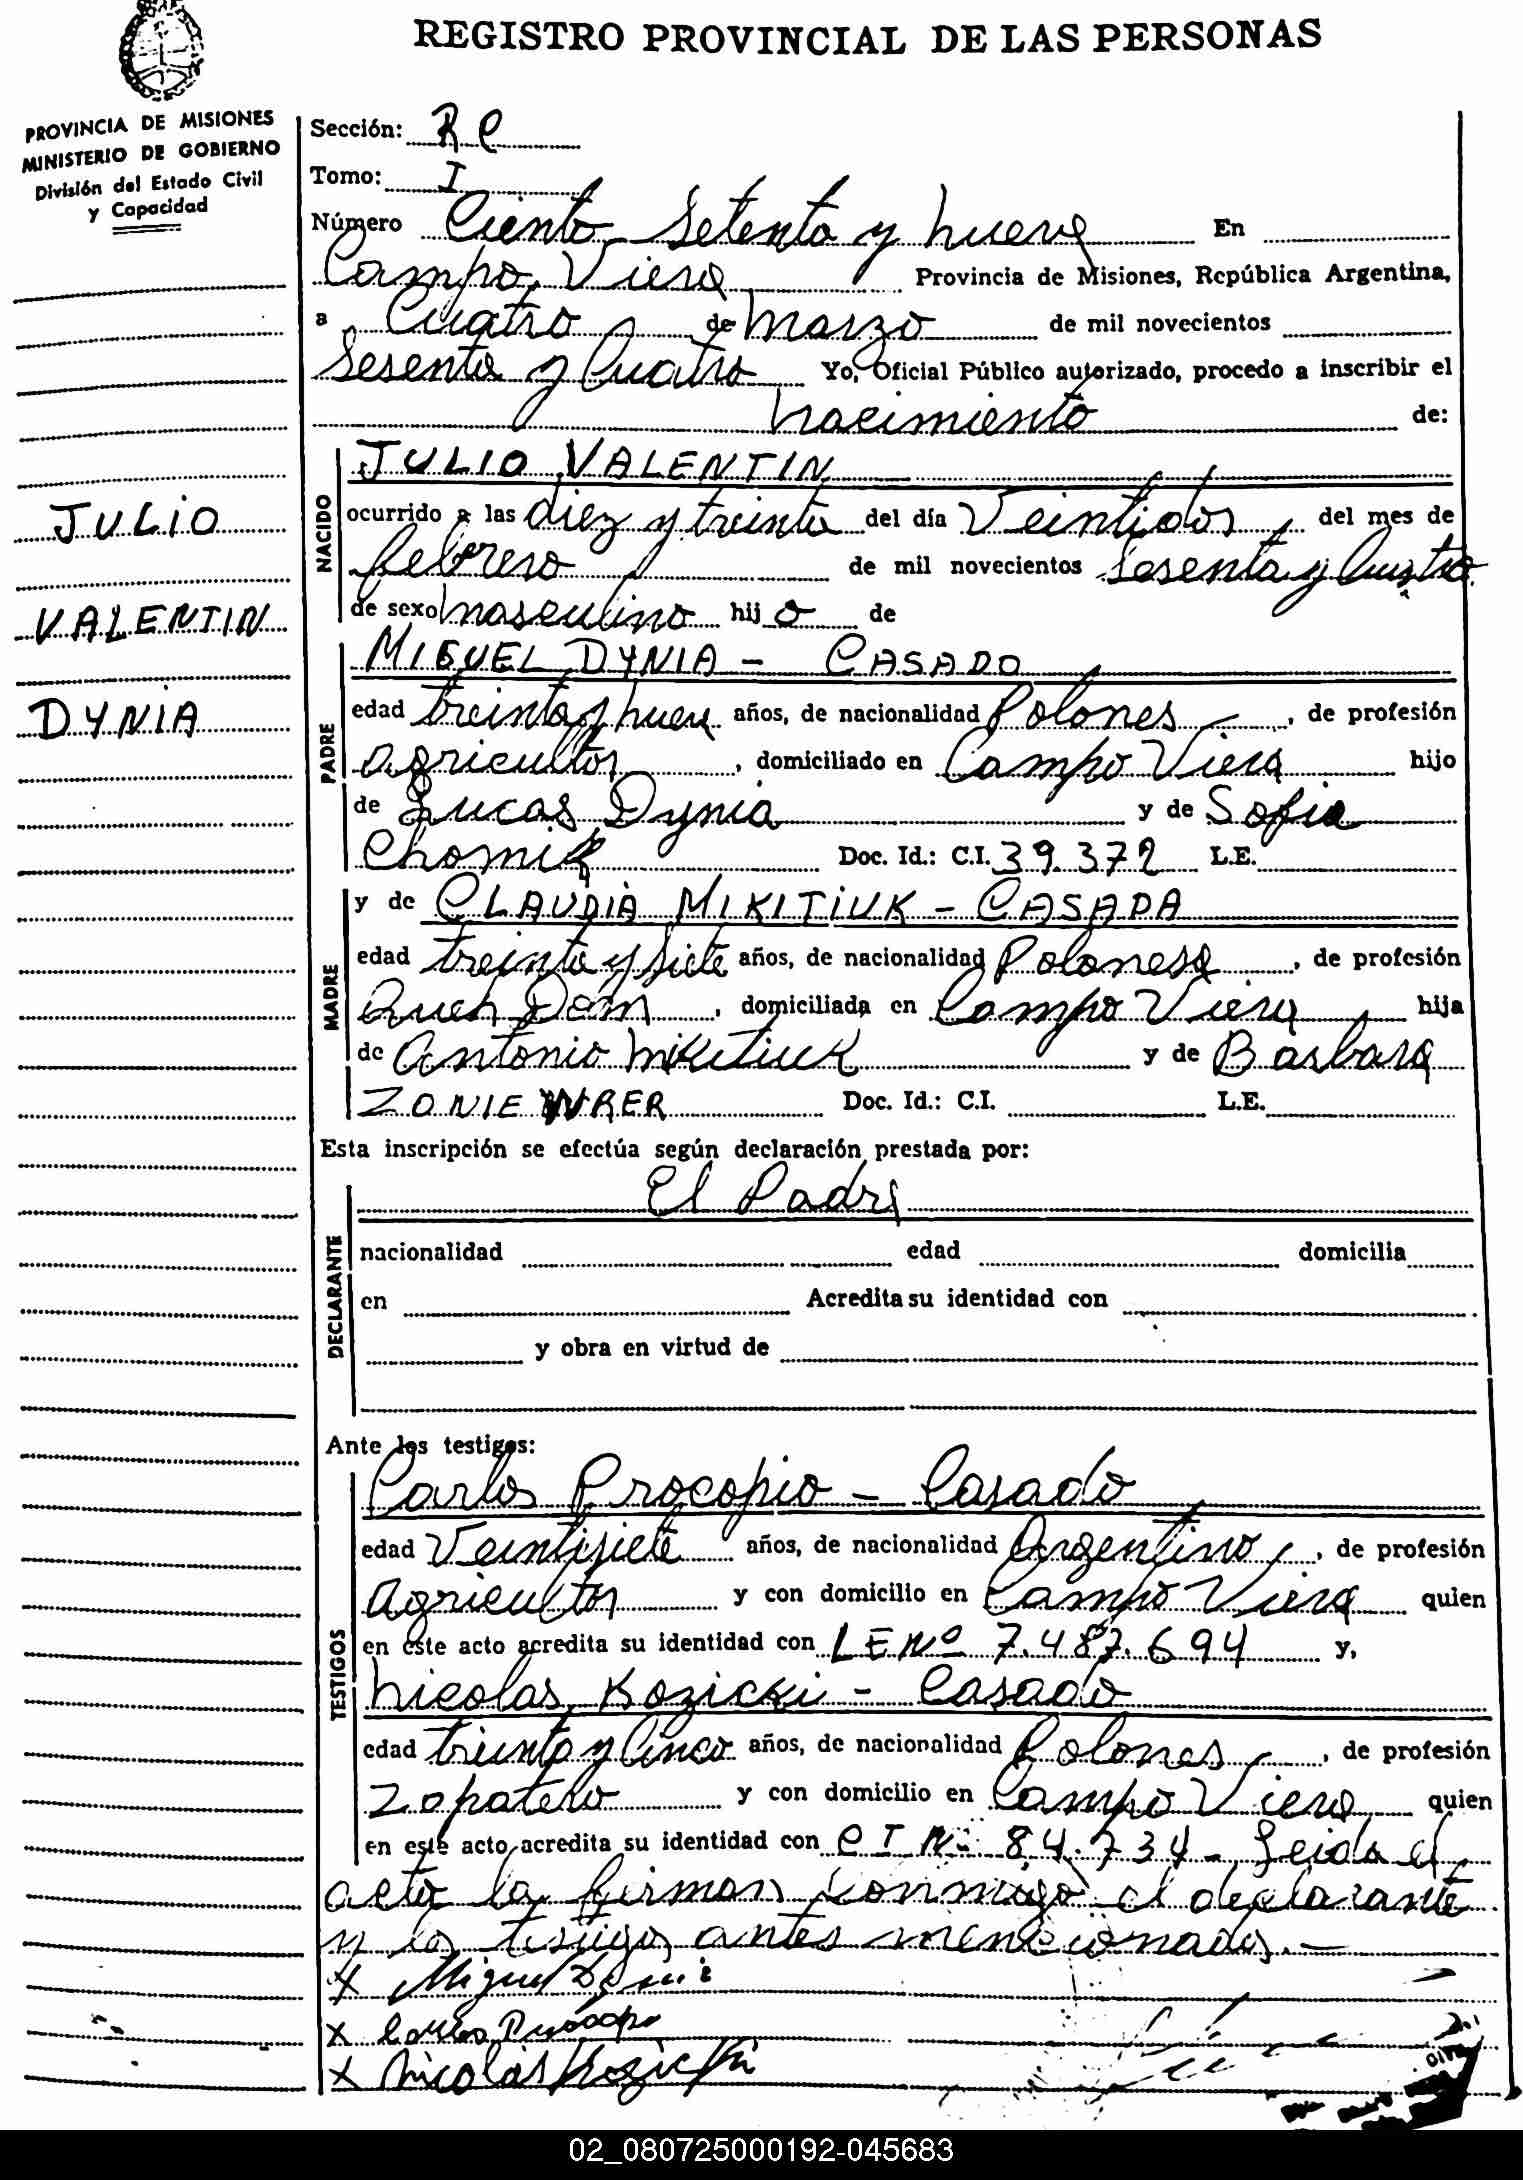 REGISTRO PROVINCIAL DE LAS PERSONAS
PROVINCIA DE MISIONES
MINISTERIO DE GOBIERNO
División del Estado Civil
y Capacidad
JULIO
VALENTIN
DYNIA
Sección: R C
Tomo: I
Número Ciento Setenta y nueve En
Campo Viera Provincia de Misiones, República Argentina,
a Cuatro de Marzo de mil novecientos
Sesenta y Cuatro Yo, Oficial Público autorizado, procedo a inscribir el
nacimiento de:
NACIDO
JULIO VALENTIN
ocurrido a las diez y treinta del día Veintidos del mes de
febrero de mil novecientos Sesenta y Cuatro
de sexo masculino hijo de
PADRE
MIGUEL DYNIA - CASADO
edad treinta y nueve años, de nacionalidad Polones, de profesión
agricultor, domiciliado en Campo Viera hijo
de Lucas Dynia y de Sofia
Chomik Doc. Id.: C.I. 39.372 L.E.
MADRE
y de CLAUDIA MIKITIUK - CASADA
edad treinta y siete años, de nacionalidad Polonesa, de profesión
Queh Dom, domiciliada en Campo Viera hija
de Antonio Mikitiuk y de Barbara
ZONIE WRER Doc. Id.: C.I. L.E.
Esta inscripción se efectúa según declaración prestada por:
DECLARANTE
El Padre
nacionalidad edad domicilia
en Acredita su identidad con
y obra en virtud de
Ante los testigos:
TESTIGOS
Carlos Procopio - Casado
edad Veintisiete años, de nacionalidad Argentino, de profesión
Agricultor y con domicilio en Campo Viera quien
en este acto acredita su identidad con LE Nº 7.487.694 y,
Nicolas Kozicki - Casado
edad treinta y Cinco años, de nacionalidad Polones, de profesión
Zapatero y con domicilio en Campo Viera quien
en este acto acredita su identidad con C I N- 84.734 - Leida el
acta la firman conmigo el declarante
y los testigos antes mencionados. -
X Miguel Dynia
X Carlos Procopio
X Nicolás Kozicki
02_080725000192-045683